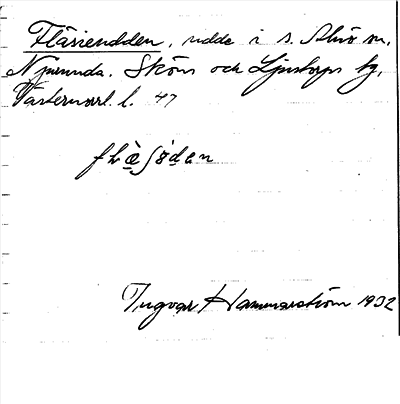 Fläsiendden, udde i s. Alnö sn,
Njurunda. Sköns och Ljustorps tg,
Västernorrl. l. 47
Ingvar Hammarström 1932